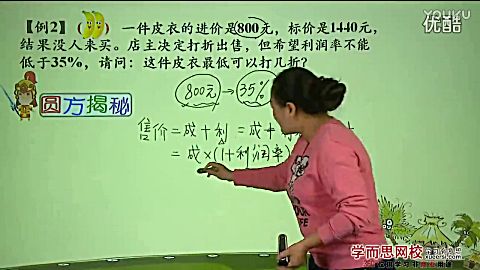 YOUKU
优酷
【例2】( ) 一件皮衣的进价是800元，标价是1440元，
结果没人来买。店主决定打折出售，但希望利润率不能
低于35%，请问：这件皮衣最低可以打几折？
800元→35%
圆方揭秘
售价=成+利=成+
=成×(1+利润率)
学而思网校
xueersi.com